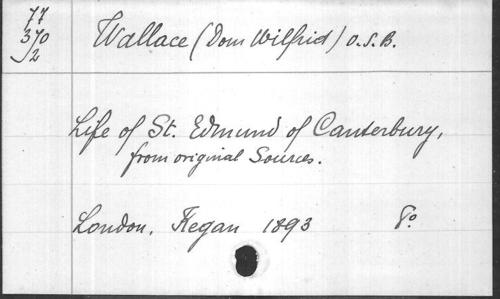 77
370
2
Wallace (Dom Wilfrid) O.S.B.
Life of St. Edmund of Canterbury,
from original Sources.
London, Kegan 1893 8º